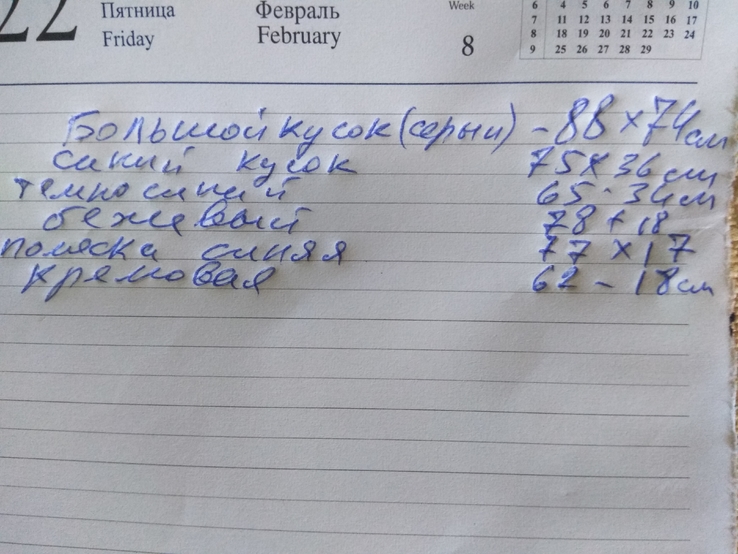 22 Пятница Февраль Week 6 4 5 6 7 8 9 10
Friday February 8 7 11 12 13 14 15 16 17
8 18 19 20 21 22 23 24
9 25 26 27 28 29
Большой кусок (серый) - 88 x 74 см
синий кусок 75 x 36 см
темно синий 65 - 34 м
бежевый 78 + 18
полоска синяя 77 x 17
кремовая 62 - 18 см